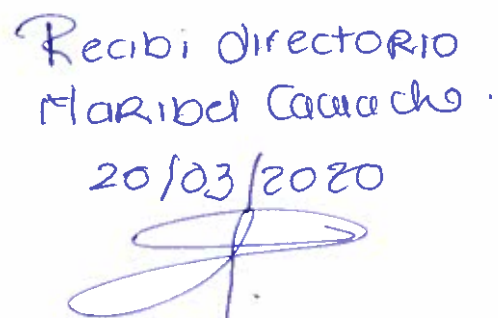 Recibi directorio
Maribel Camacho.
20/03/2020